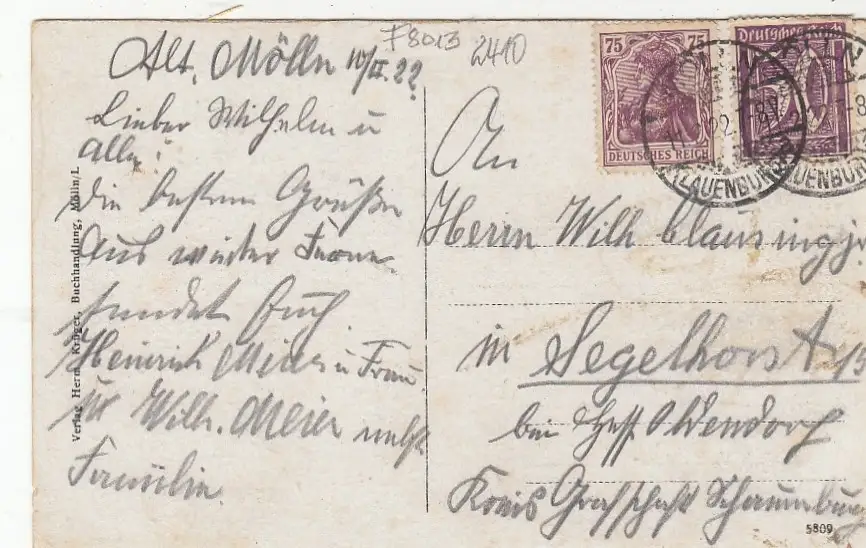 F8013 2410
Alt. Mölln 10/II. 22.
Lieber Wilhelm u
alle!
die besten Grüße
aus weiter Ferne
sendet Euch
Heinrich Meier u Frau
u Wilh. Meier nebst
Familie.
Verlag Herm. Krüger, Buchhandlung, Mölln/L.
75 75
DEUTSCHES REICH
Deutsches Reich
50
LAUENBURG
An
Herrn Wilh Clausing jr.
in Segelhorst
bei Hess. Oldendorf
Kreis Grafschaft Schaumburg
5809